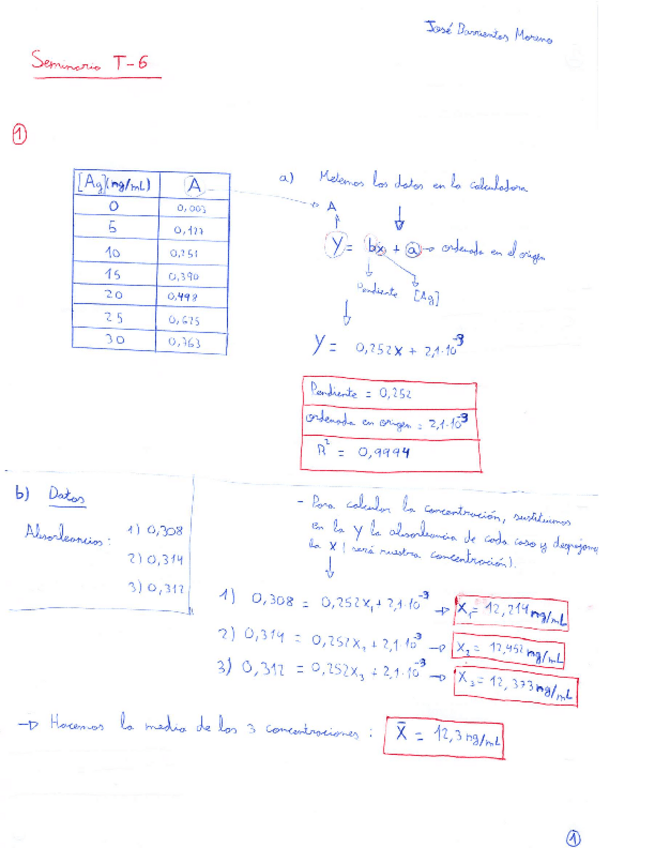 José Barrientos Moreno
Seminario T-6
1
[Ag](ng/mL) A
0 0,003
5 0,127
10 0,251
15 0,390
20 0,498
25 0,625
30 0,763
a) Metemos los datos en la calculadora
A
Y = bx + a → ordenada en el origen
Pendiente [Ag]
Y = 0,252x + 2,1·10⁻³
Pendiente = 0,252
ordenada en origen = 2,1·10⁻³
R² = 0,9994
b) Datos
Absorbancias: 1) 0,308
2) 0,314
3) 0,312
- Para calcular la concentración, sustituimos
en la Y la absorbancia de cada caso y despejamos
la X (será nuestra concentración).
1) 0,308 = 0,252x₁ + 2,1·10⁻³ → X₁ = 12,214 ng/mL
2) 0,314 = 0,252x₂ + 2,1·10⁻³ → X₂ = 12,452 ng/mL
3) 0,312 = 0,252x₃ + 2,1·10⁻³ → X₃ = 12,373 ng/mL
→ Hacemos la media de las 3 concentraciones: X̄ = 12,3 ng/mL
1